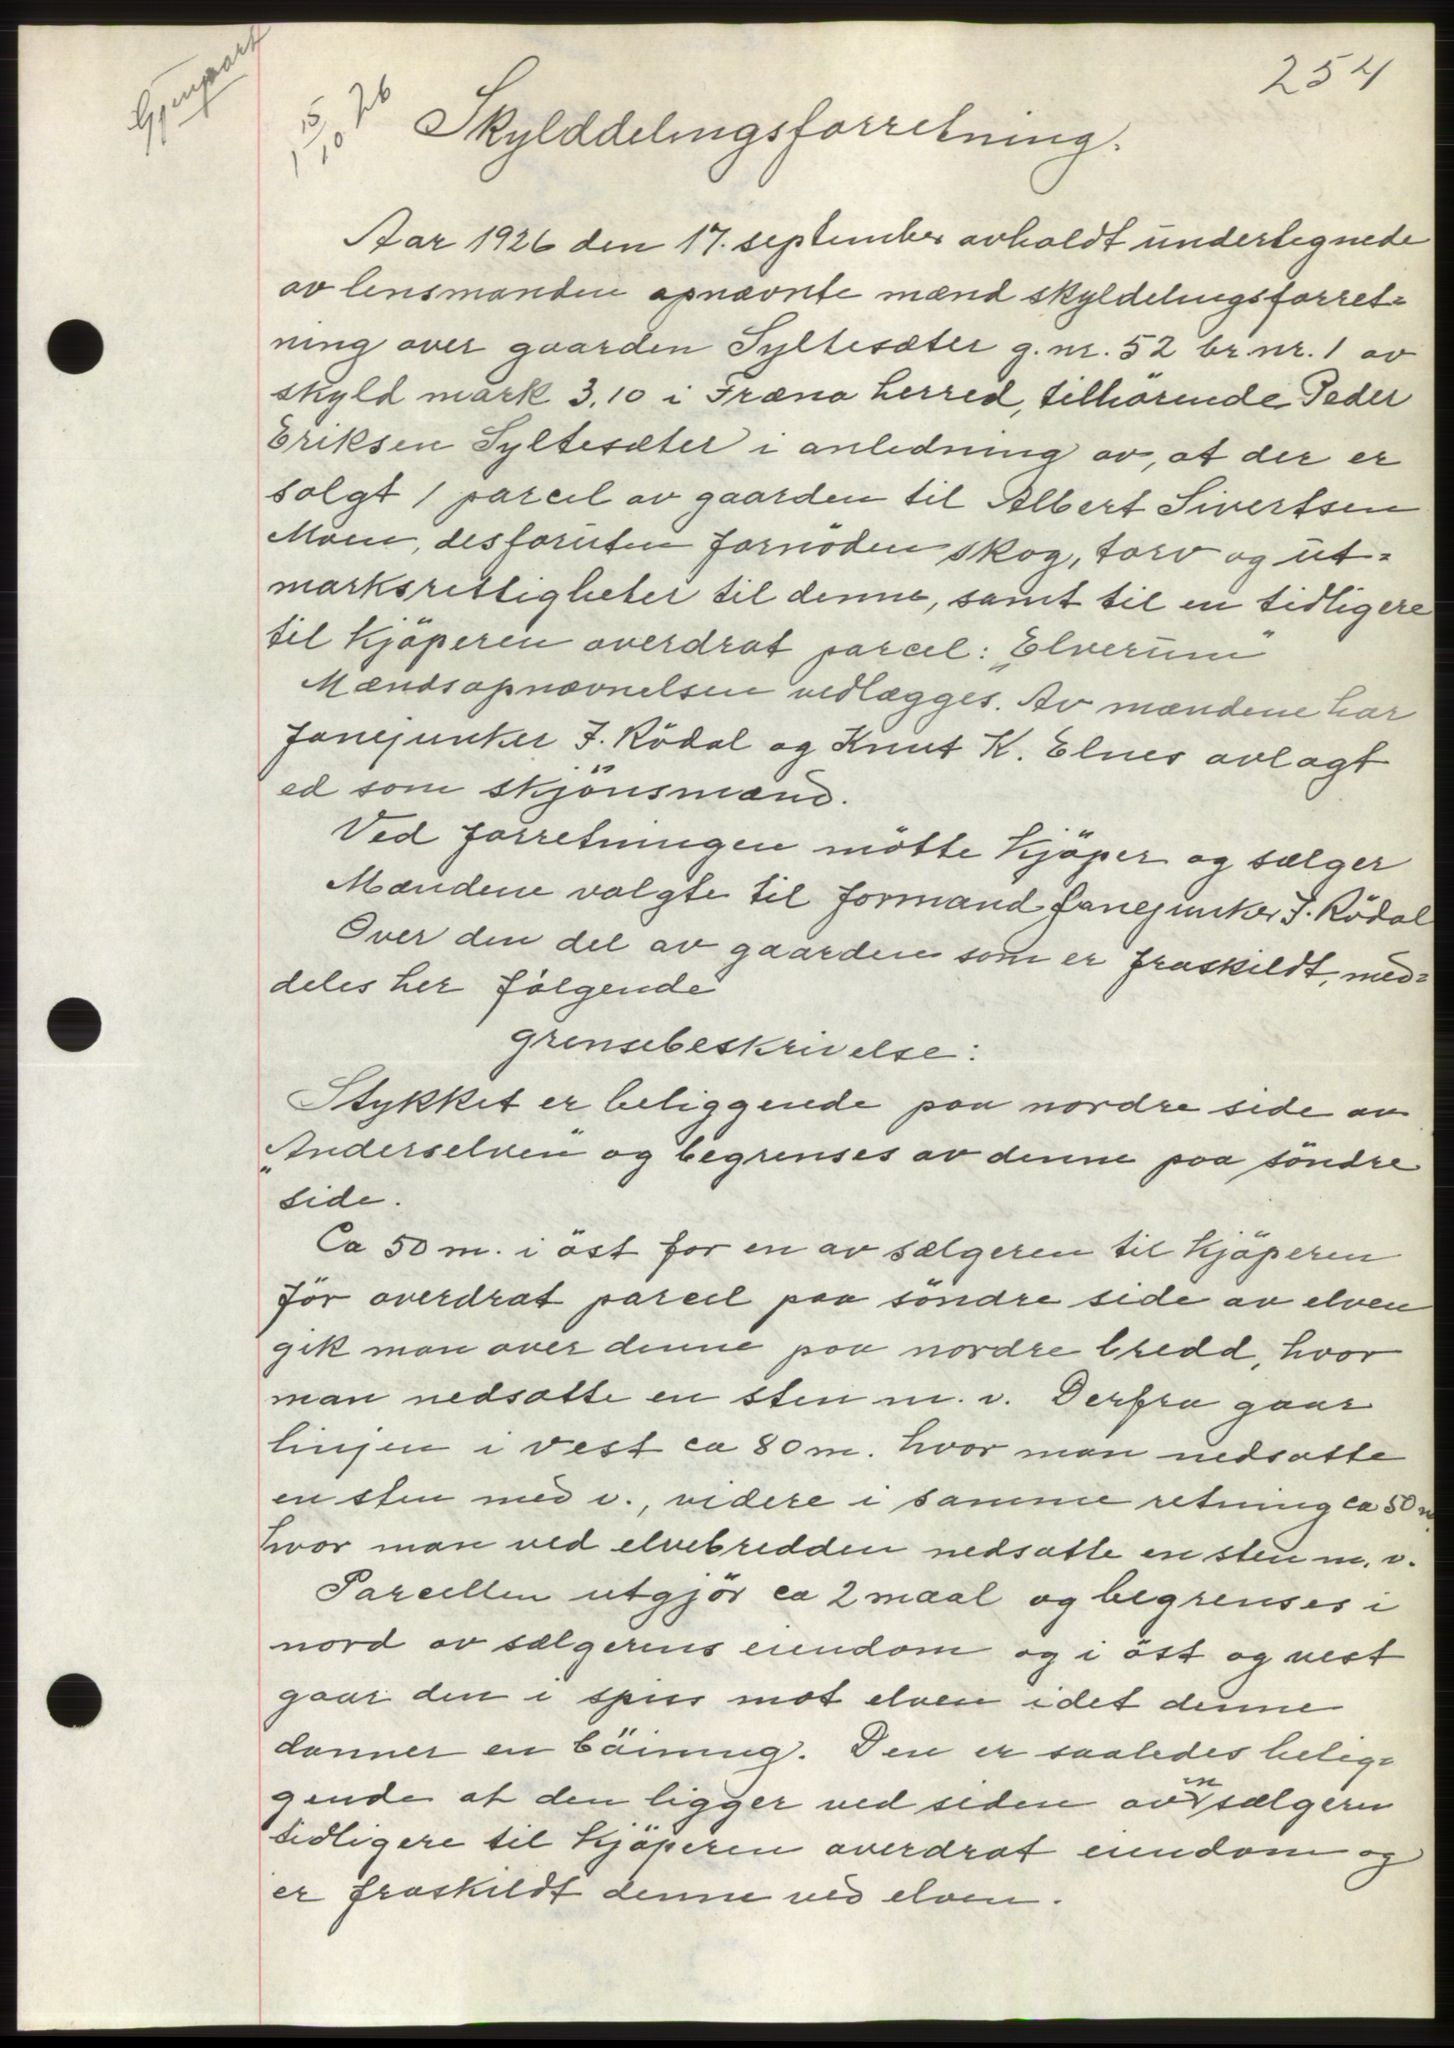 Gjenpart
254
15/10 26
Skylddelingsforretning.
Aar 1926 den 17. september avholdt undertegnede
av lensmanden opnævnte mænd skyldelingsforret=
ning over gaarden Syltesæter g. nr. 52 br. nr. 1 av
skyld mark 3,10 i Fræna herred, tilhörende Peder
Eriksen Syltesæter i anledning av, at der er
solgt 1 parcel av gaarden til Albert Sivertsen
Moen, desforuten fornöden skog, torv og ut=
marksrettigheter til denne, samt til en tidligere
til kjöperen overdrat parcel: „Elverum"
Mændsopnævnelsen vedlægges. Av mændene har
fanejunker J. Rödal og Knut K. Elnes avlagt
ed som skjönsmænd.
Ved forretningen mötte kjöper og sælger
Mændene valgte til formand fanejunker J. Rödal
Over den del av gaarden som er fraskildt, med=
deles her fölgende
grensebeskrivelse:
Stykket er beliggende paa nordre side av
„Anderselven" og begrenses av denne paa söndre
side.
Ca 50 m. i öst for en av sælgeren til kjöperen
för overdrat parcel paa söndre side av elven
gik man over denne paa nordre bredd, hvor
man nedsatte en sten m. v. Derfra gaar
linjen i vest ca 80 m. hvor man nedsatte
en sten med v., videre i samme retning ca 50 m
hvor man ved elvebredden nedsatte en sten m. v.
Parcellen utgjör ca 2 maal og begrenses i
nord av sælgerens eiendom og i öst og vest
gaar den i spiss mot elven idet denne
danner en böining. Den er saaledes belig=
gende at den ligger ved siden av en sælgeren
tidligere til kjöperen overdrat eiendom og
er fraskildt denne ved elven.